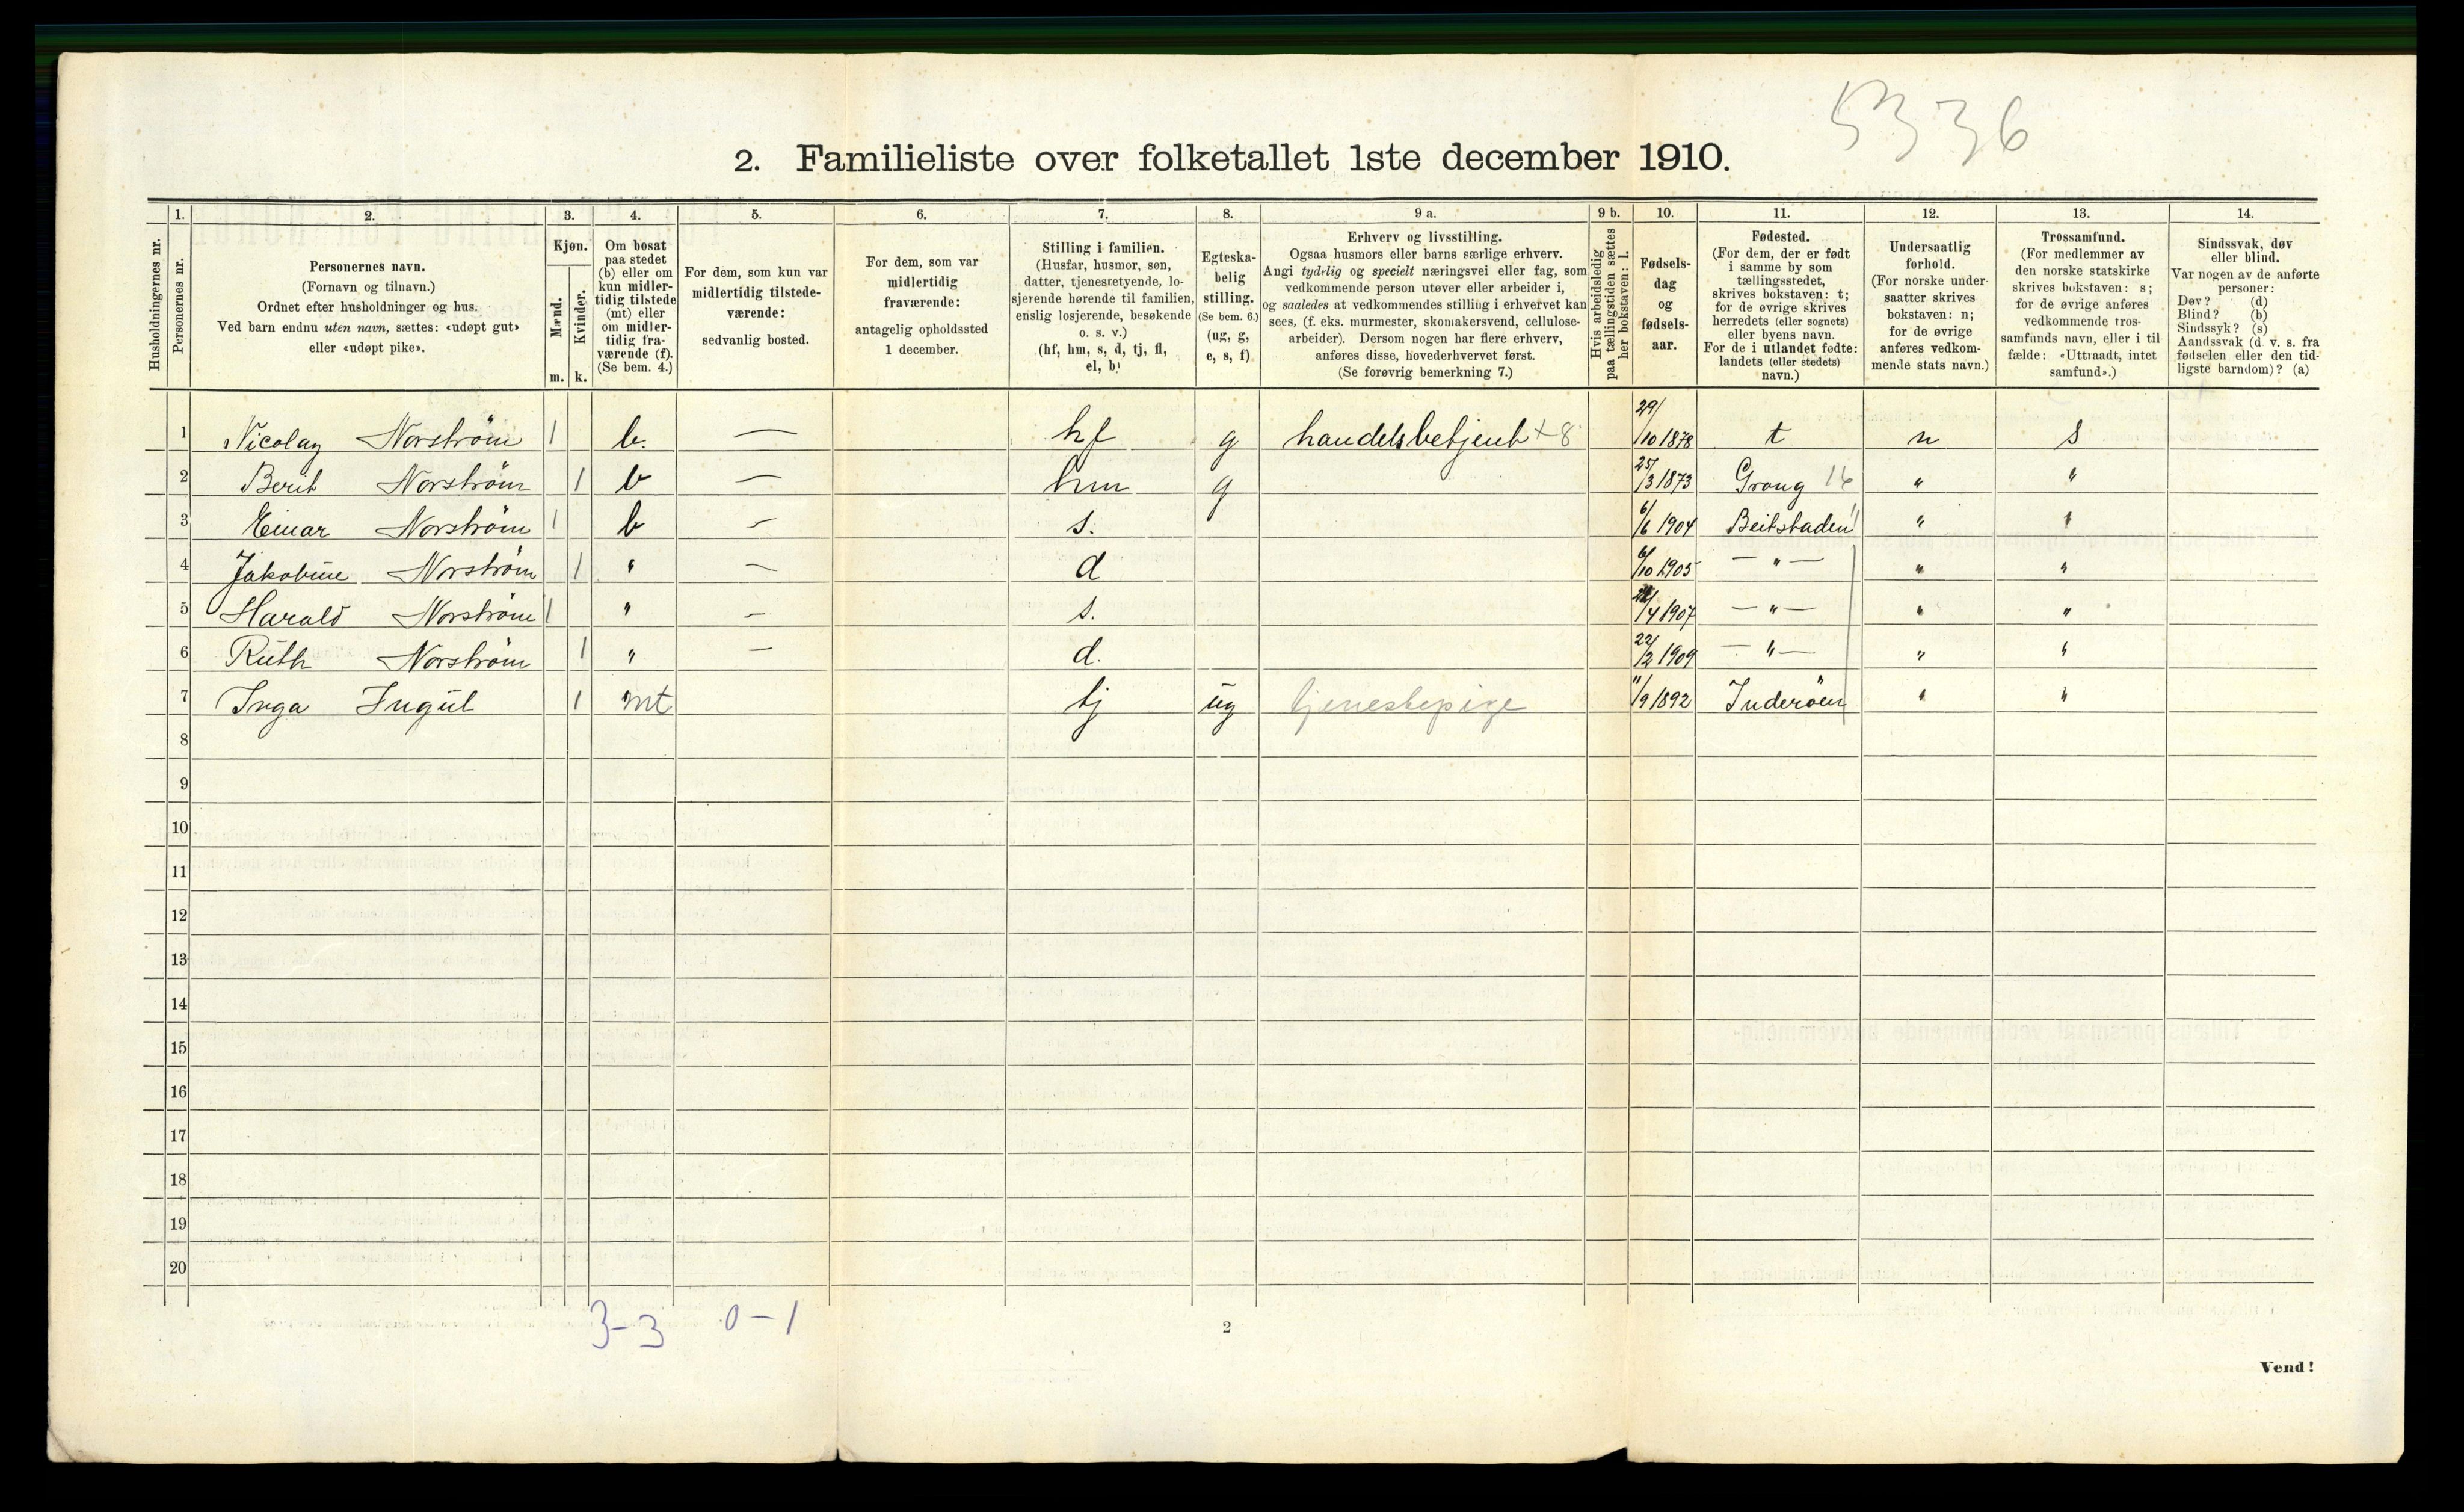 5336
2. Familieliste over folketallet 1ste december 1910.
1. 2. 3. 4. 5. 6. 7. 8. 9 a. 9 b. 10. 11. 12. 13. 14.
Husholdningernes nr.
Personernes nr.
Personernes navn.
(Fornavn og tilnavn.)
Ordnet efter husholdninger og hus.
Ved barn endnu uten navn, sættes: «udøpt gut»
eller «udøpt pike».
Kjøn.
Mænd.
Kvinder.
m. k.
Om bosat
paa stedet
(b) eller om
kun midler-
tidig tilstede
(mt) eller
om midler-
tidig fra-
værende (f).
(Se bem. 4.)
For dem, som kun var
midlertidig tilstede-
værende:
sedvanlig bosted.
For dem, som var
midlertidig
fraværende:
antagelig opholdssted
1 december.
Stilling i familien.
(Husfar, husmor, søn,
datter, tjenestetyende, lo-
sjerende hørende til familien,
enslig losjerende, besøkende
o. s. v.)
(hf, hm, s, d, tj, fl,
el, b)
Egteska-
belig
stilling.
(Se bem. 6.)
(ug, g,
e, s, f)
Erhverv og livsstilling.
Ogsaa husmors eller barns særlige erhverv.
Angi tydelig og specielt næringsvei eller fag, som
vedkommende person utøver eller arbeider i,
og saaledes at vedkommendes stilling i erhvervet kan
sees, (f. eks. murmester, skomakersvend, cellulose-
arbeider). Dersom nogen har flere erhverv,
anføres disse, hovederhvervet først.
(Se forøvrig bemerkning 7.)
Hvis arbeidsledig
paa tællingstiden sættes
her bokstaven: l.
Fødsels-
dag
og
fødsels-
aar.
Fødested.
(For dem, der er født
i samme by som
tællingsstedet,
skrives bokstaven: t;
for de øvrige skrives
herredets (eller sognets)
eller byens navn.
For de i utlandet fødte:
landets (eller stedets)
navn.)
Undersaatlig
forhold.
(For norske under-
saatter skrives
bokstaven: n;
for de øvrige
anføres vedkom-
mende stats navn.)
Trossamfund.
(For medlemmer av
den norske statskirke
skrives bokstaven: s;
for de øvrige anføres
vedkommende tros-
samfunds navn, eller i til
fælde: «Uttraadt, intet
samfund».)
Sindssvak, døv
eller blind.
Var nogen av de anførte
personer:
Døv? (d)
Blind? (b)
Sindssyk? (s)
Aandssvak (d. v. s. fra
fødselen eller den tid-
ligste barndom)? (a)
1 Nicolay Norström 1 b. — hf g handelsbetjent +8 29/10 1878 t n s
2 Berit Norström 1 b — hm g 25/3 1873 Grong 16 " "
3 Einar Norström 1 b — s. 6/6 1904 Beitstaden 11 " "
4 Jakobine Norström 1 " — d 6/10 1905 — " — " "
5 Harald Norström 1 " — s. /4 1907 — " — " "
6 Ruth Norström 1 " — d. 22/2 1909 — " — " "
7 Inga Ingul 1 mt tj ug tjenestepige 11/9 1892 Inderöen " "
8
9
10
11
12
13
14
15
16
17
18
19
20
3-3 0-1
2
Vend!